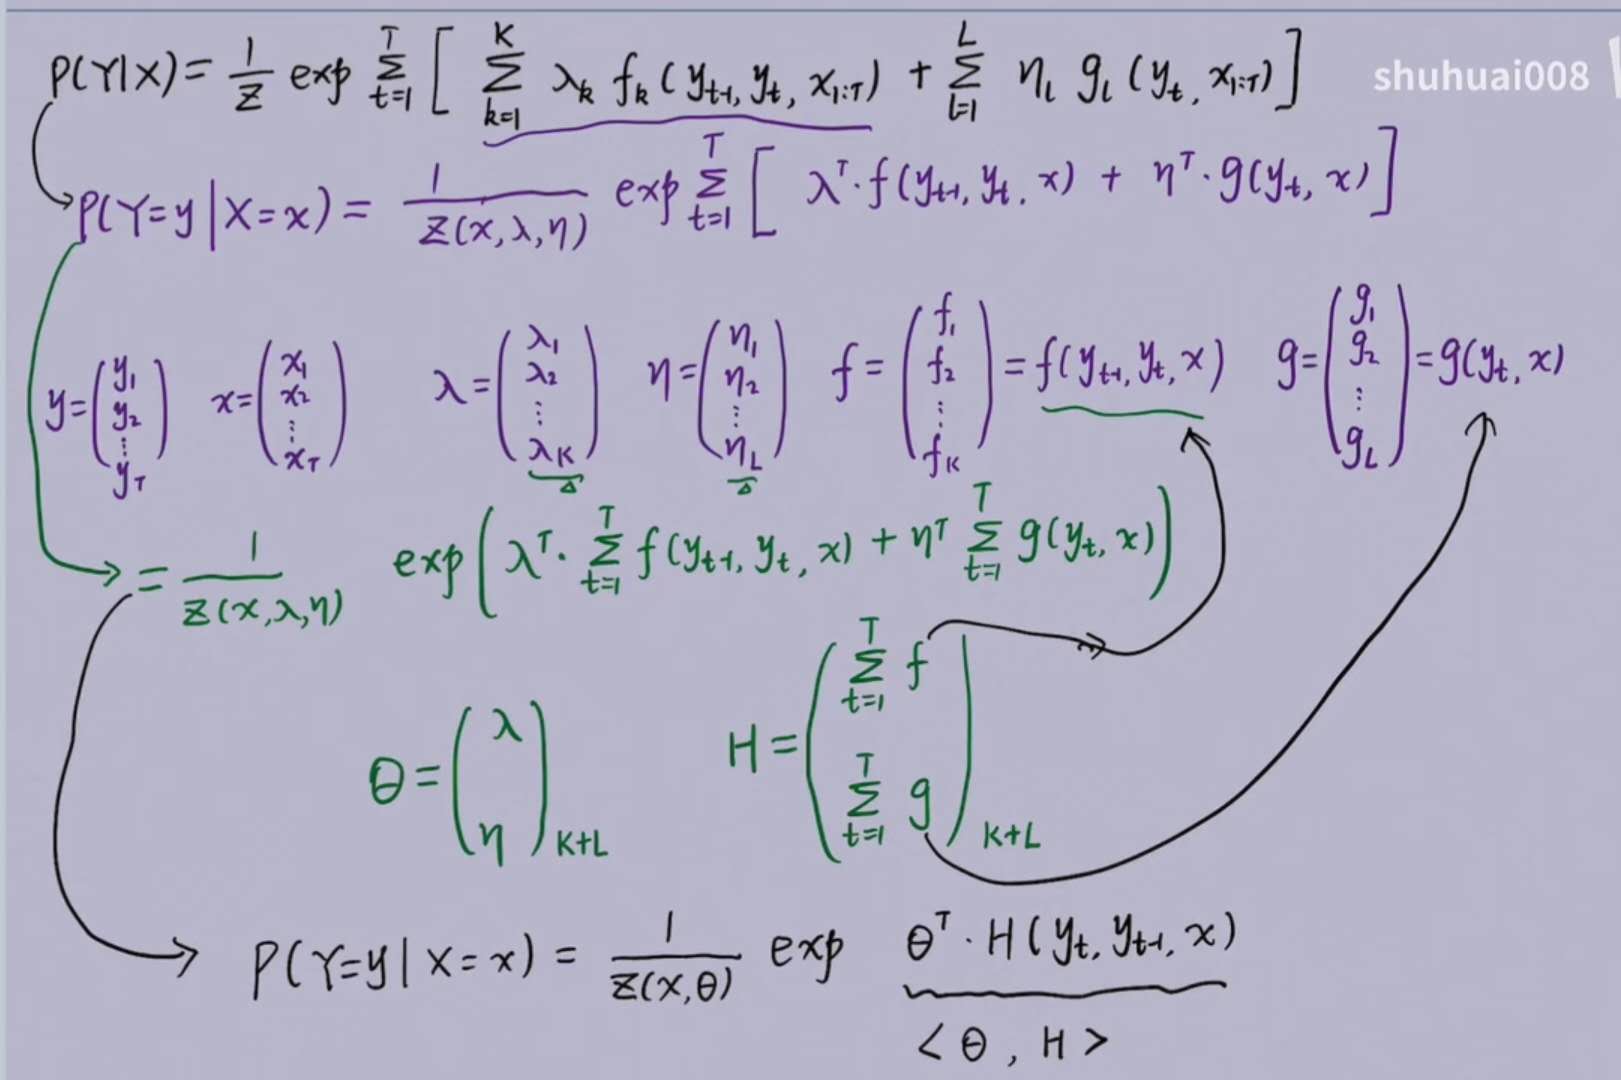 P(Y|X) = 1/Z exp Σ_{t=1}^{T} [ Σ_{k=1}^{K} λ_k f_k (y_{t-1}, y_t, x_{1:T}) + Σ_{l=1}^{L} η_l g_l (y_t, x_{1:T}) ]
shuhuai008
P(Y=y|X=x) = 1/Z(x,λ,η) exp Σ_{t=1}^{T} [ λ^T · f(y_{t-1}, y_t, x) + η^T · g(y_t, x) ]
y = (y_1 y_2 ⋮ y_T) x = (x_1 x_2 ⋮ x_T) λ = (λ_1 λ_2 ⋮ λ_K) η = (η_1 η_2 ⋮ η_L) f = (f_1 f_2 ⋮ f_K) = f(y_{t-1}, y_t, x) g = (g_1 g_2 ⋮ g_L) = g(y_t, x)
= 1/Z(x,λ,η) exp( λ^T · Σ_{t=1}^{T} f(y_{t-1}, y_t, x) + η^T Σ_{t=1}^{T} g(y_t, x) )
θ = (λ η)_{K+L} H = (Σ_{t=1}^{T} f Σ_{t=1}^{T} g)_{K+L}
P(Y=y|X=x) = 1/Z(x,θ) exp θ^T · H(y_t, y_{t-1}, x)
<θ, H>